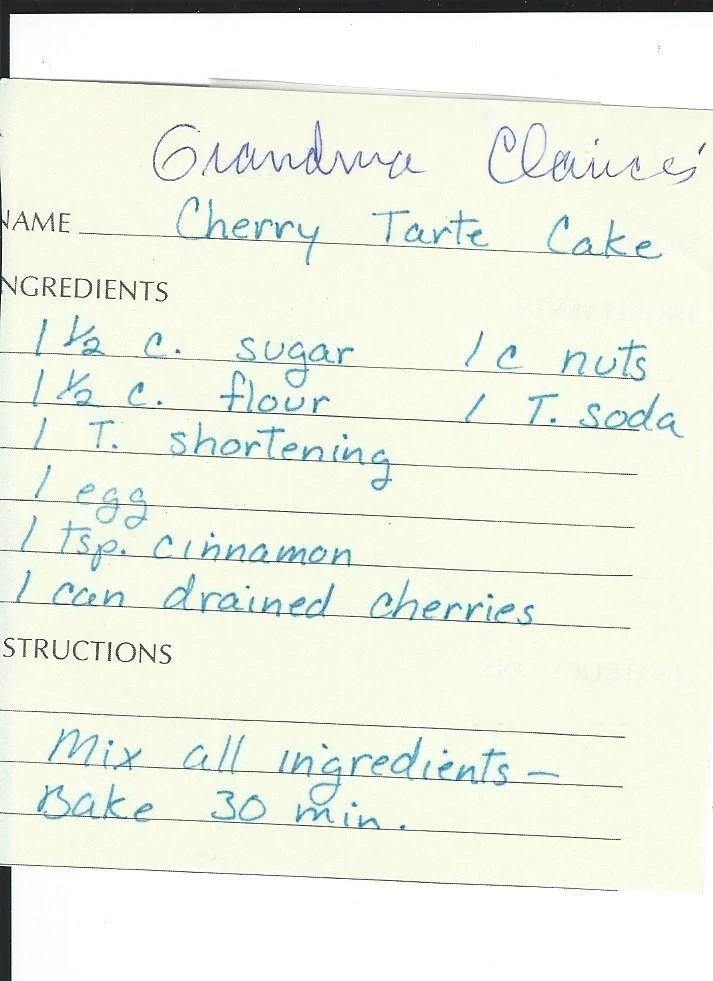 Grandma Claire's
NAME Cherry Tarte Cake
NGREDIENTS
1 1/2 c. sugar 1 c nuts
1 1/2 c. flour 1 T. soda
1 T. shortening
1 egg
1 tsp. cinnamon
1 can drained cherries
STRUCTIONS
Mix all ingredients —
Bake 30 min.